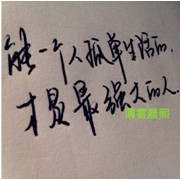 能一个人孤单生活的.
才是最强大的人
薄荷晨熙